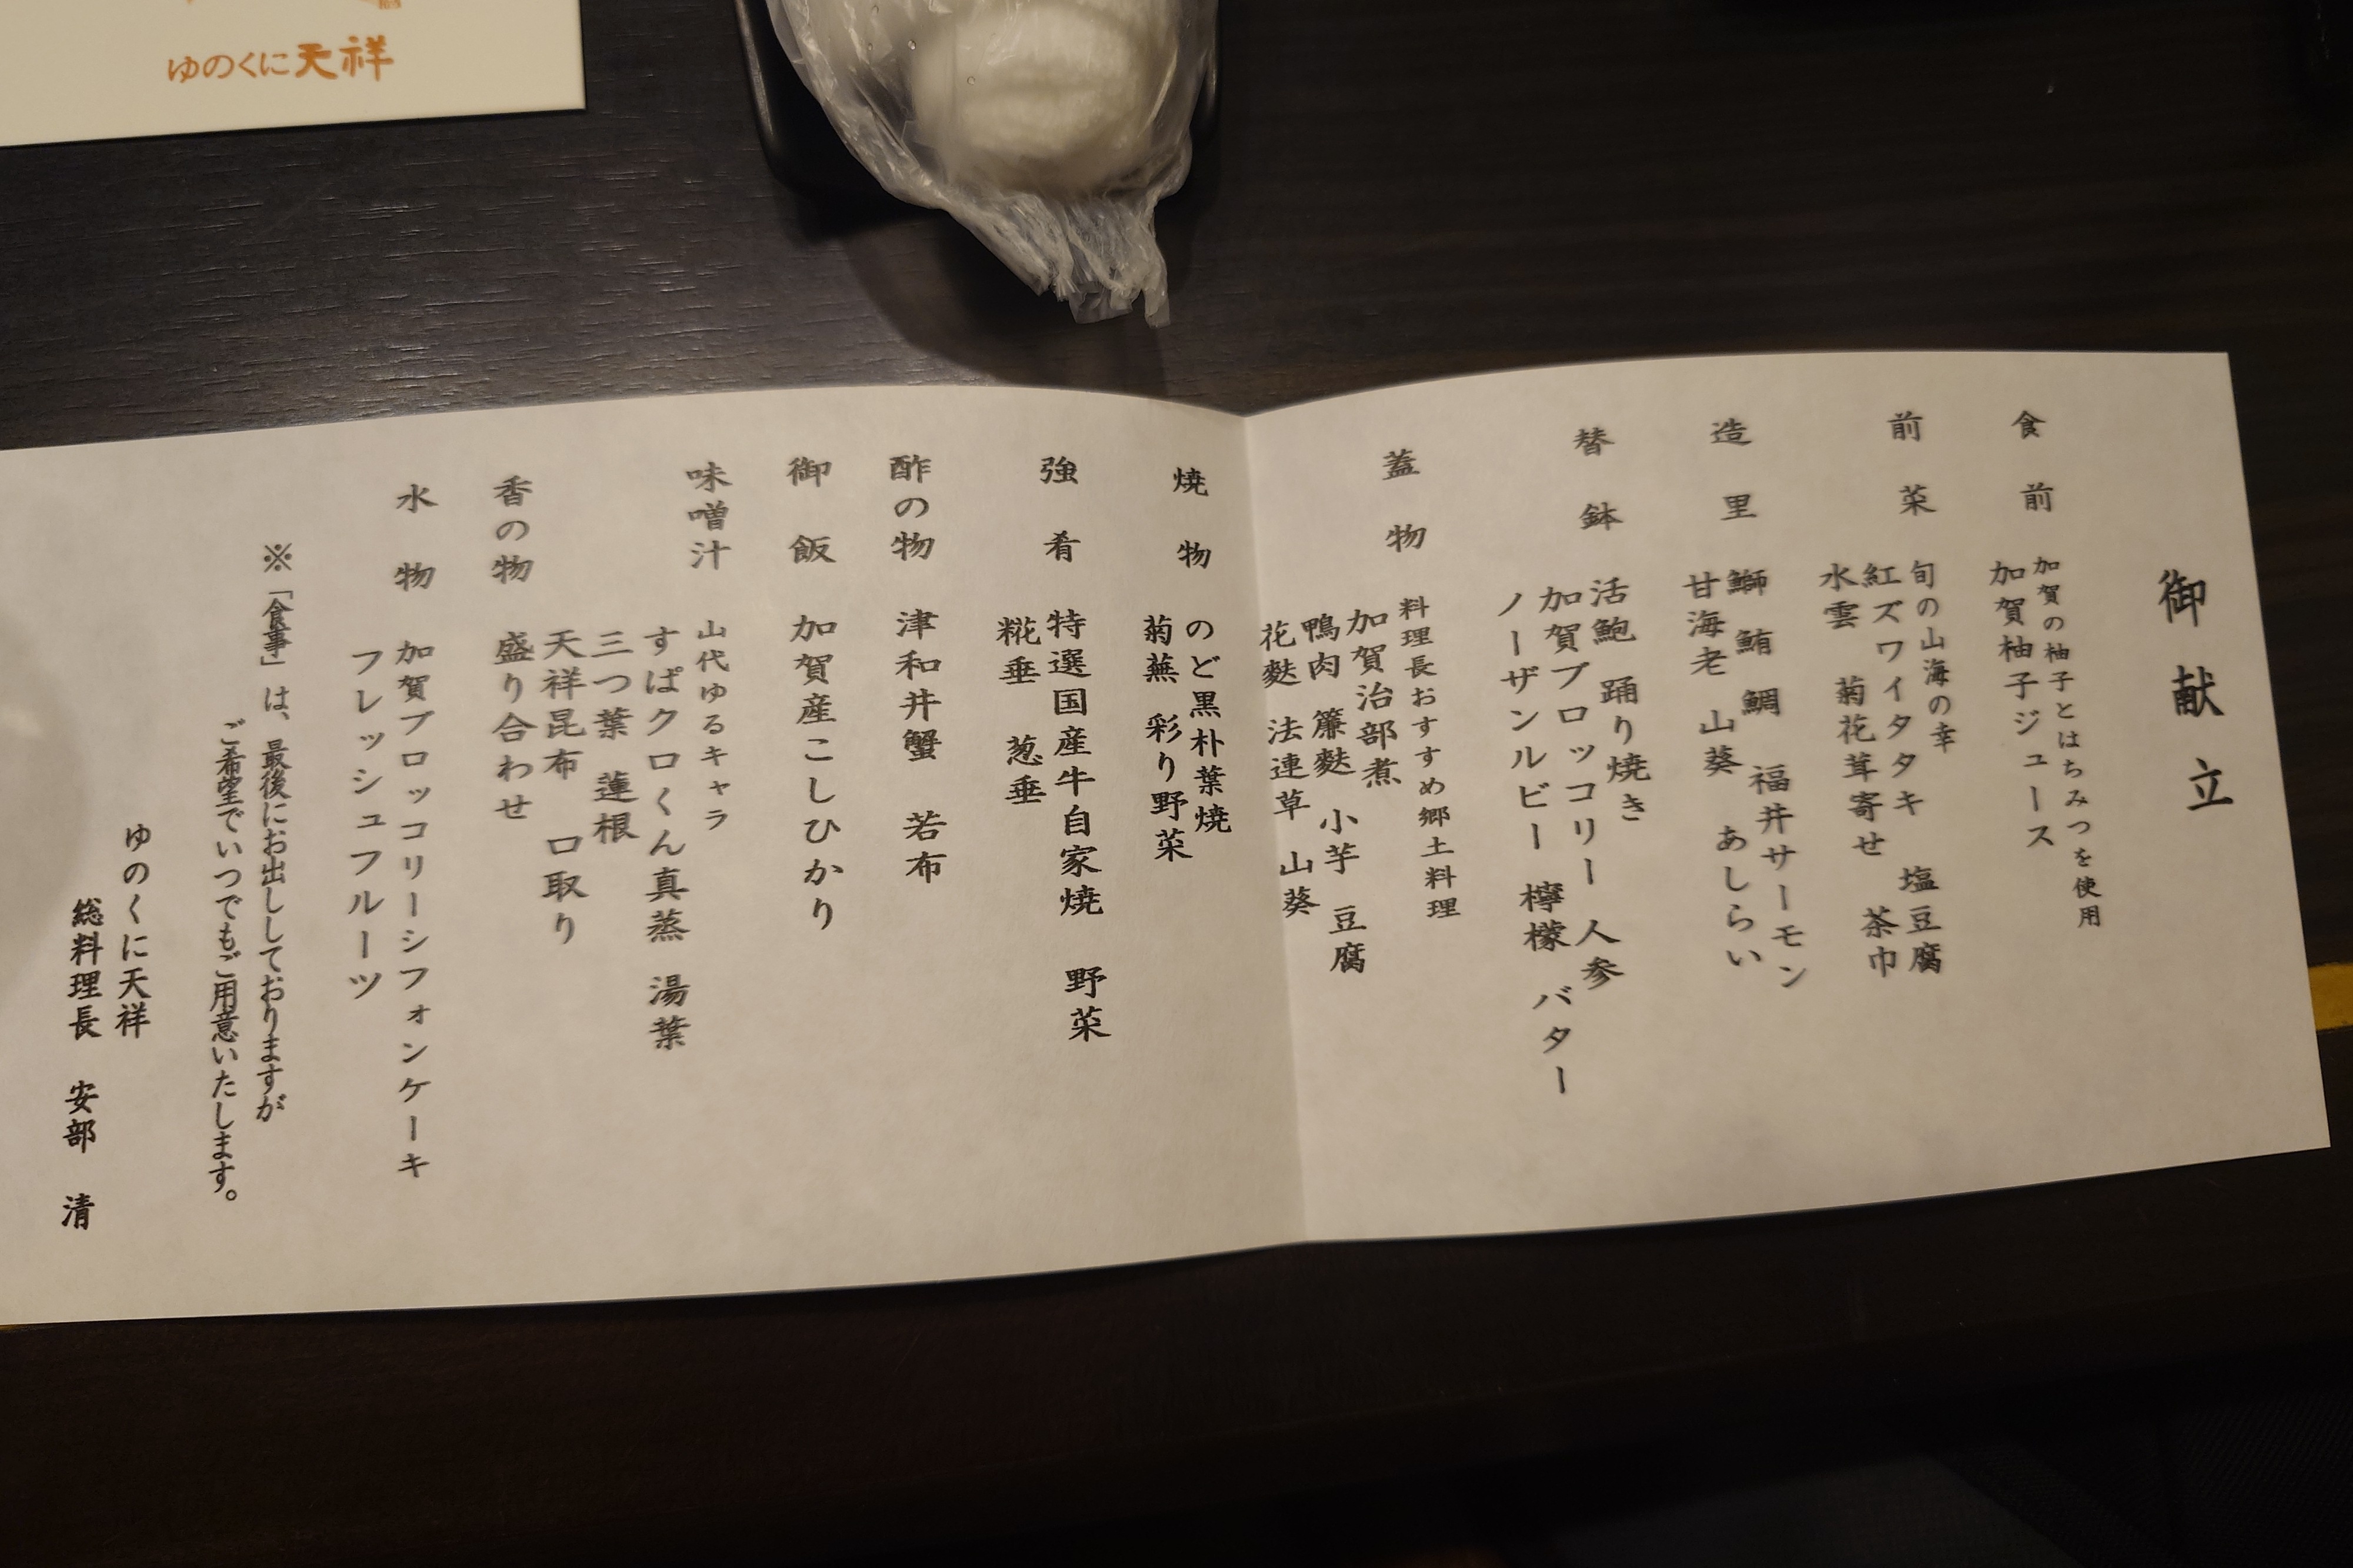 ゆのくに天祥
御献立
食前
加賀の柚子とはちみつを使用
加賀柚子ジュース
前菜
旬の山海の幸
紅ズワイタタキ 塩豆腐
水雲 菊花茸寄せ 茶巾
造里
鰤 鮪 鯛 福井サーモン
甘海老 山葵 あしらい
替鉢
活鮑 踊り焼き
加賀ブロッコリー 人参
ノーザンルビー 檸檬 バター
蓋物
料理長おすすめ郷土料理
加賀治部煮
鴨肉 簾麩 小芋 豆腐
花麩 法連草 山葵
焼物
のど黒朴葉焼
菊蕪 彩り野菜
強肴
特選国産牛自家焼 野菜
糀垂 葱垂
酢の物
津和井蟹 若布
御飯
加賀産こしひかり
味噌汁
山代ゆるキャラ
すぱクロくん真蒸 湯葉
三つ葉 蓮根
天祥昆布 口取り
香の物
盛り合わせ
水物
加賀ブロッコリーシフォンケーキ
フレッシュフルーツ
※「食事」は、最後にお出ししておりますが
ご希望でいつでもご用意いたします。
ゆのくに天祥
総料理長 安部 清